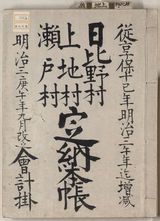 従享保十巳年明治三午年迄増減
日比野村
上地村
瀬戸村
定納本帳
明治三庚午年九月改
會計掛